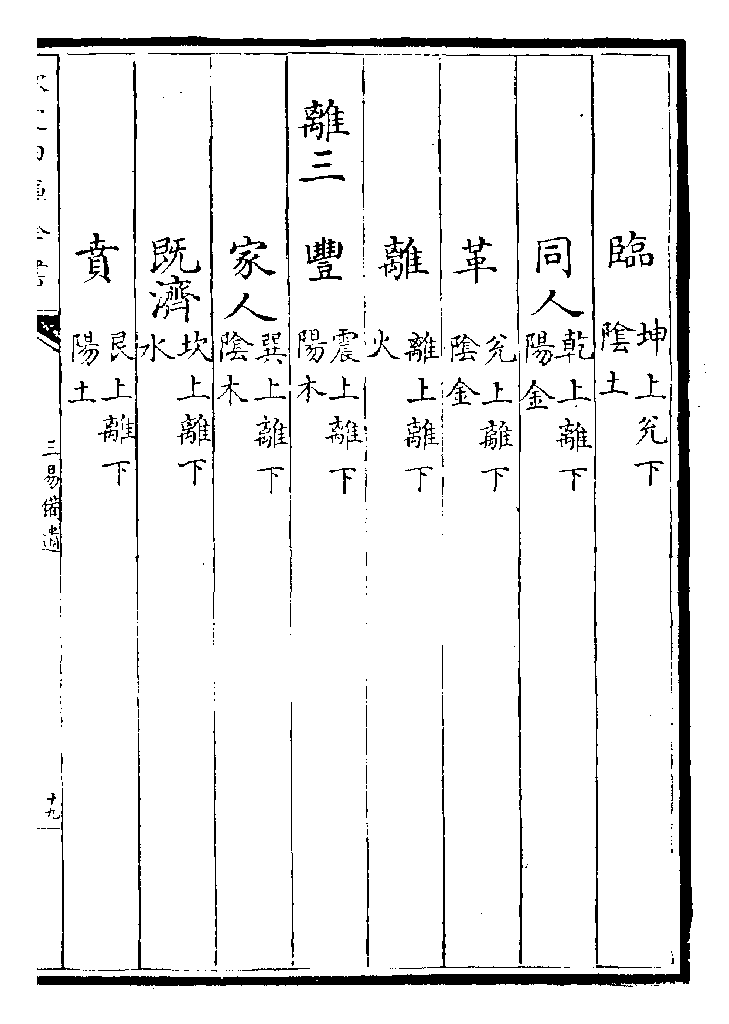 臨 坤上兌下 陰土
同人 乾上離下 陽金
革 兌上離下 陰金
離 離上離下 火
離三 豐 震上離下 陽木
家人 巽上離下 陰木
既濟 坎上離下 水
賁 艮上離下 陽土
三易備遺
十九